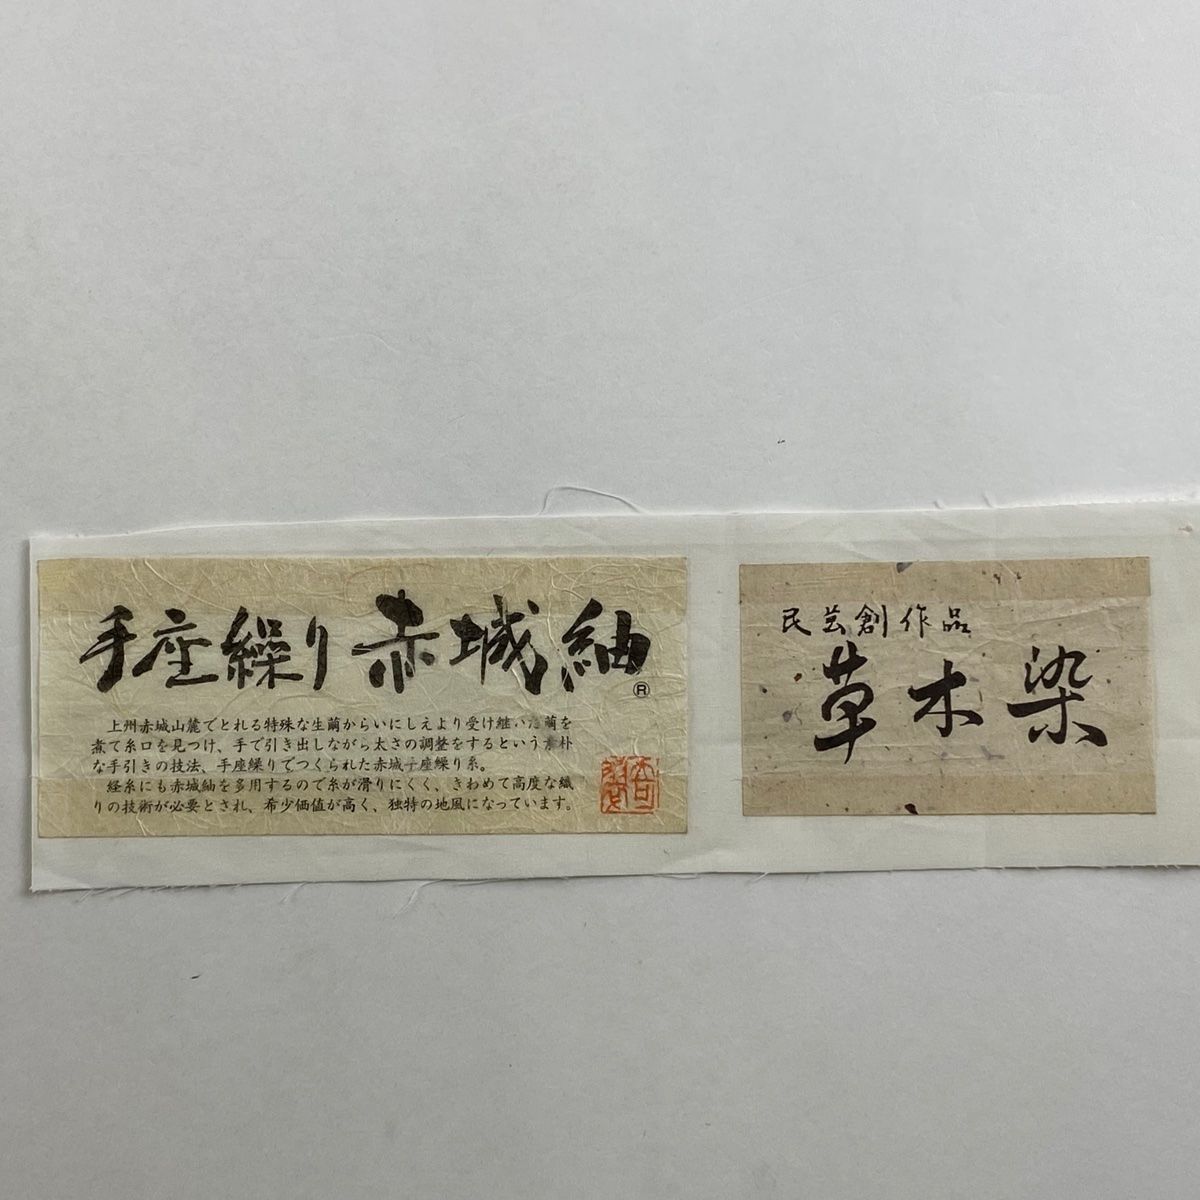 手座繰り 赤城紬
®
上州赤城山麓でとれる特殊な生繭からいにしえより受け継いだ繭を
煮て糸口を見つけ、手で引き出しながら太さの調整をするという素朴
な手引きの技法、手座繰りでつくられた赤城手座繰り糸。
経糸にも赤城紬を多用するので糸が滑りにくく、きわめて高度な織
りの技術が必要とされ、希少価値が高く、独特の地風になっています。
民芸創作品
草木染